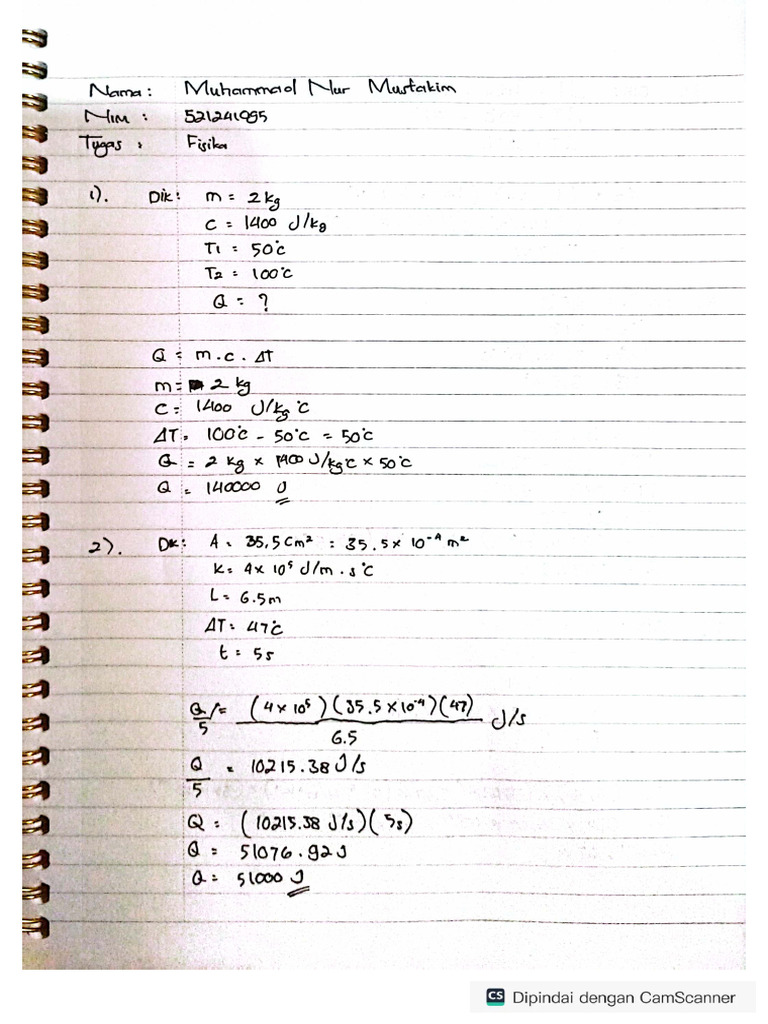 Nama : Muhammad Nur Mustakim
NIM : 521241095
Tugas : Fisika
1). Dik : m = 2 kg
C = 1400 J/kg
T1 = 50°C
T2 = 100°C
Q = ?
Q = m . c . ΔT
m = 2 kg
C = 1400 J/kg °C
ΔT = 100°C - 50°C = 50°C
Q = 2 kg × 1400 J/kg°C × 50°C
Q = 140000 J
2). Dik : A = 35,5 Cm² = 35.5 × 10⁻⁴ m²
K = 4 × 10⁵ J/m . s °C
L = 6.5 m
ΔT = 47°C
t = 5s
Q/5 = (4 × 10⁵) (35.5 × 10⁻⁴) (47) / 6.5 J/s
Q/5 = 10215.38 J/s
Q = (10215.38 J/s) (5s)
Q = 51076.92 J
Q = 51000 J
CS Dipindai dengan CamScanner